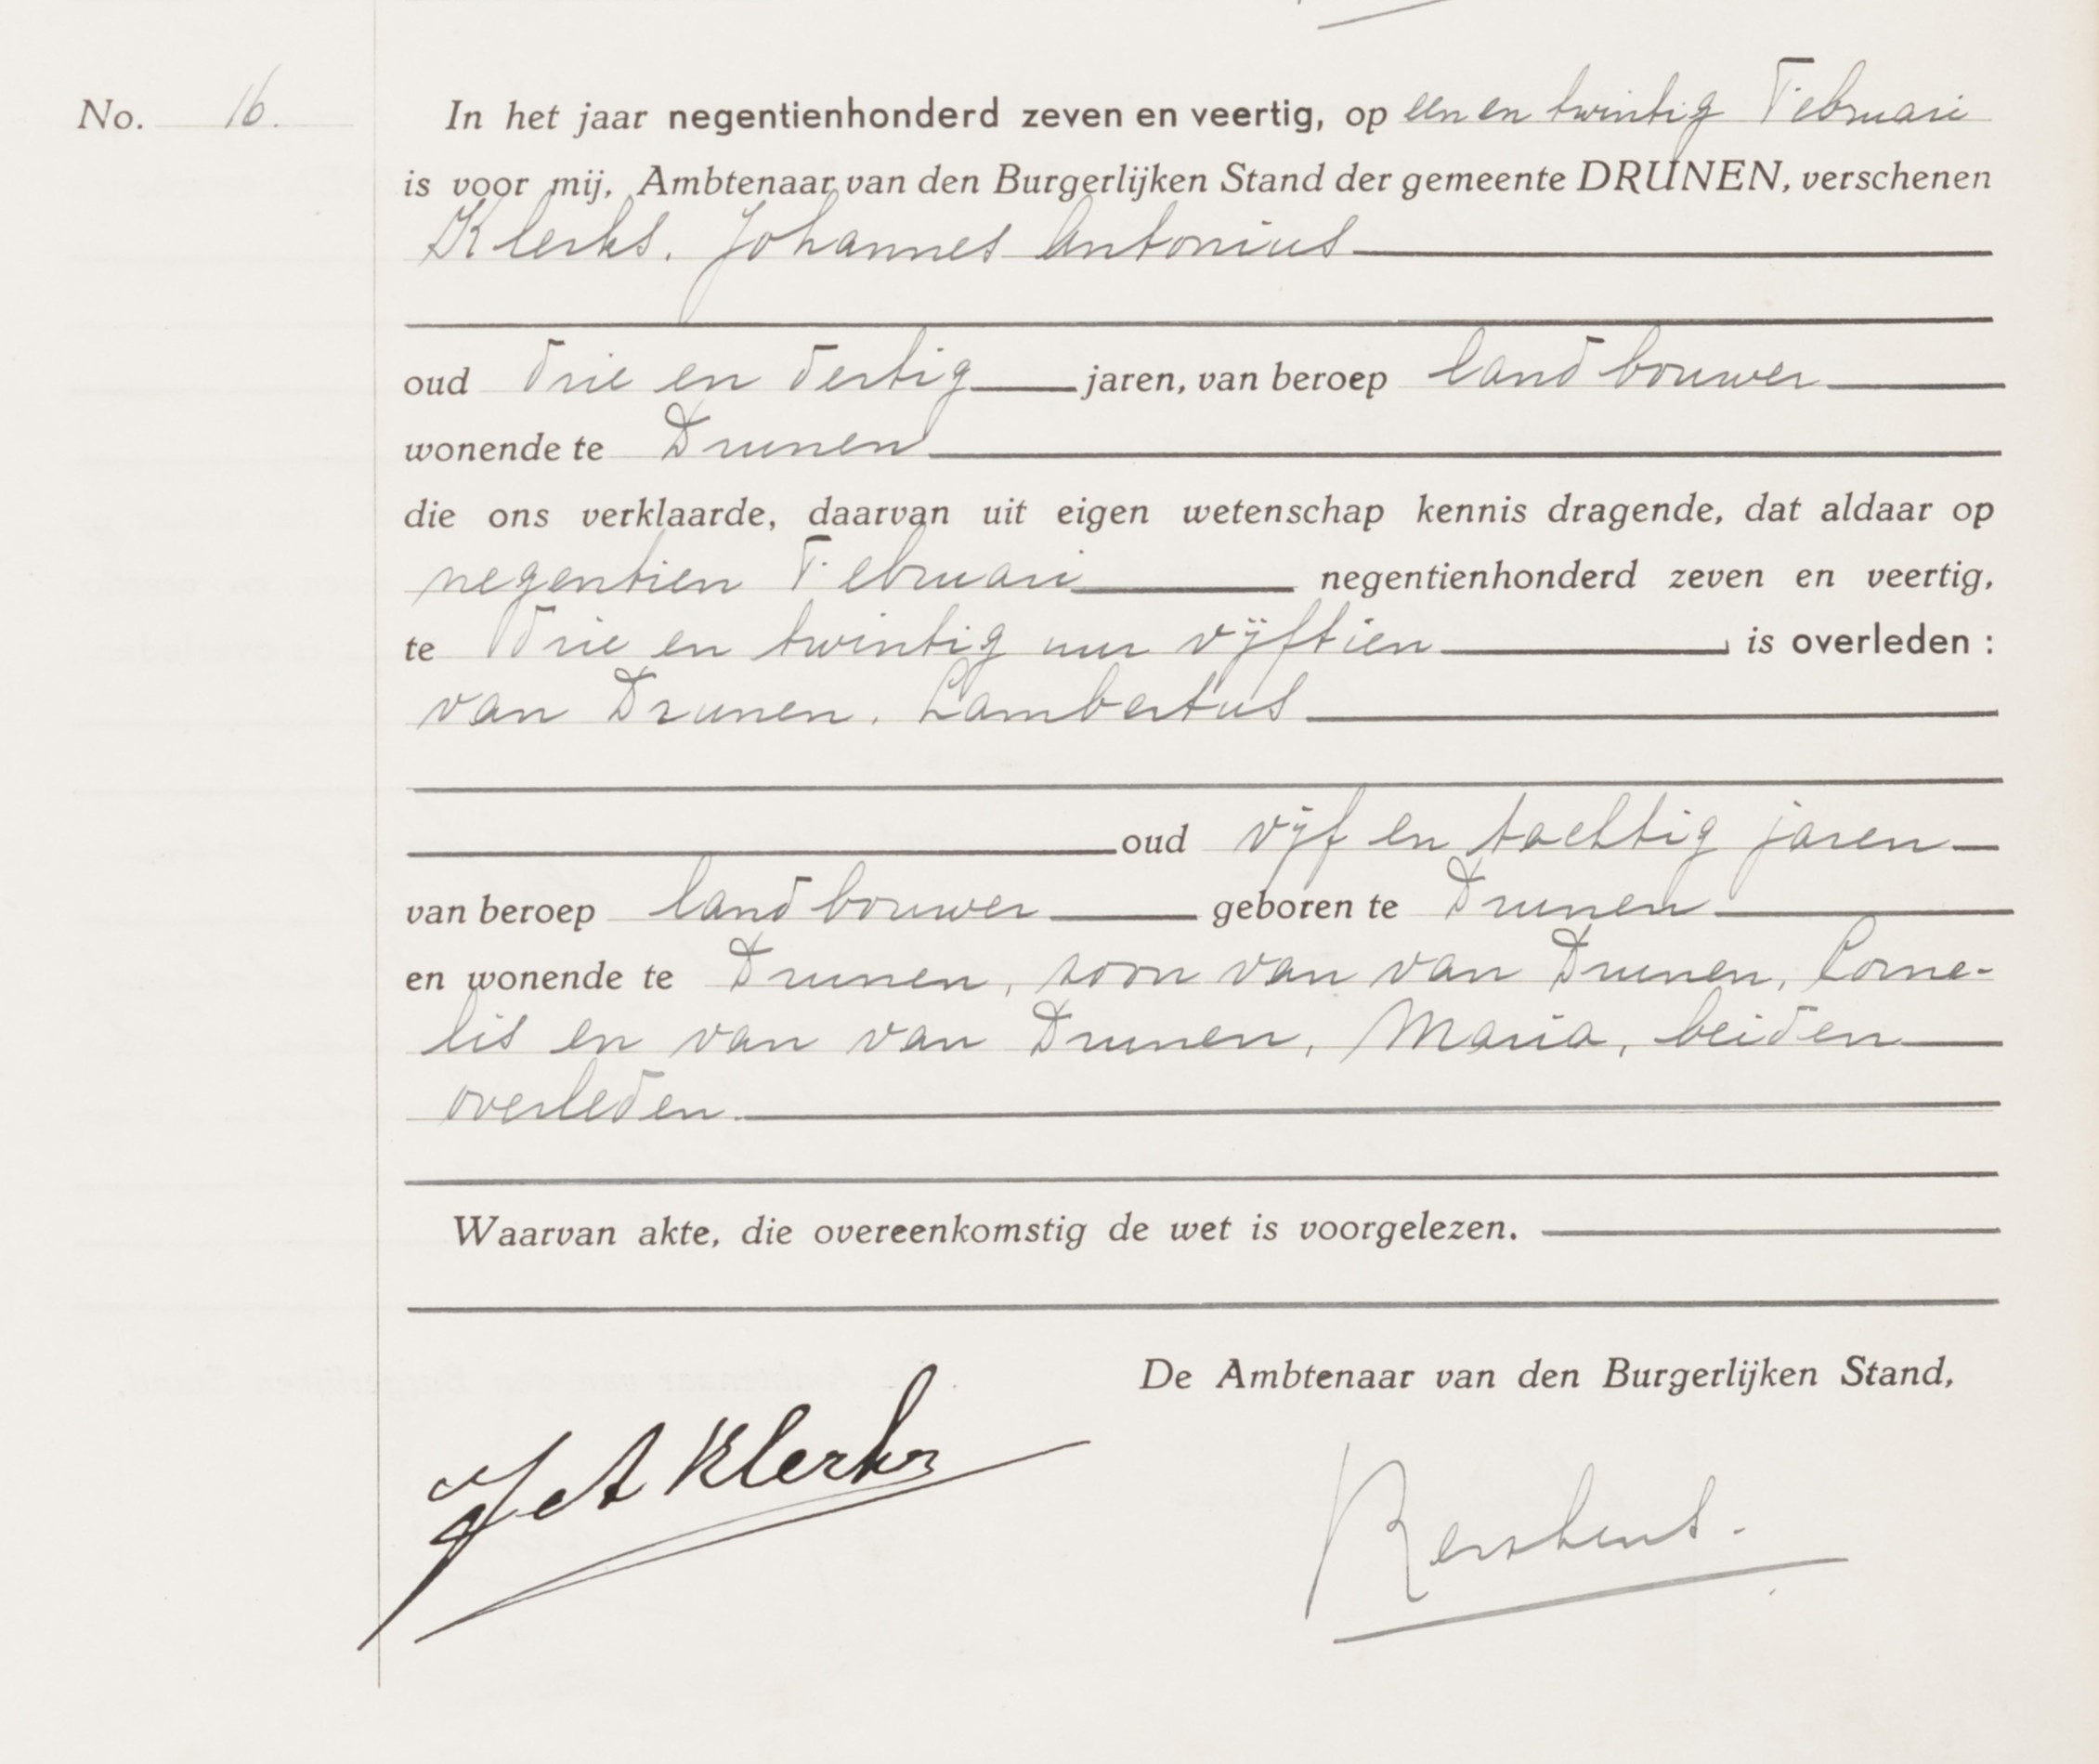 No. 16.
In het jaar negentienhonderd zeven en veertig, op een en twintig Februari
is voor mij, Ambtenaar van den Burgerlijken Stand der gemeente DRUNEN, verschenen
Klerks, Johannes Antonius
oud drie en dertig jaren, van beroep landbouwer
wonende te Drunen
die ons verklaarde, daarvan uit eigen wetenschap kennis dragende, dat aldaar op
negentien Februari negentienhonderd zeven en veertig,
te drie en twintig uur vijftien is overleden :
van Drunen, Lambertus
oud vijf en tachtig jaren
van beroep landbouwer geboren te Drunen
en wonende te Drunen, zoon van van Drunen, Corne-
lis en van van Drunen, Maria, beiden
overleden.
Waarvan akte, die overeenkomstig de wet is voorgelezen.
De Ambtenaar van den Burgerlijken Stand,
J A Klerks